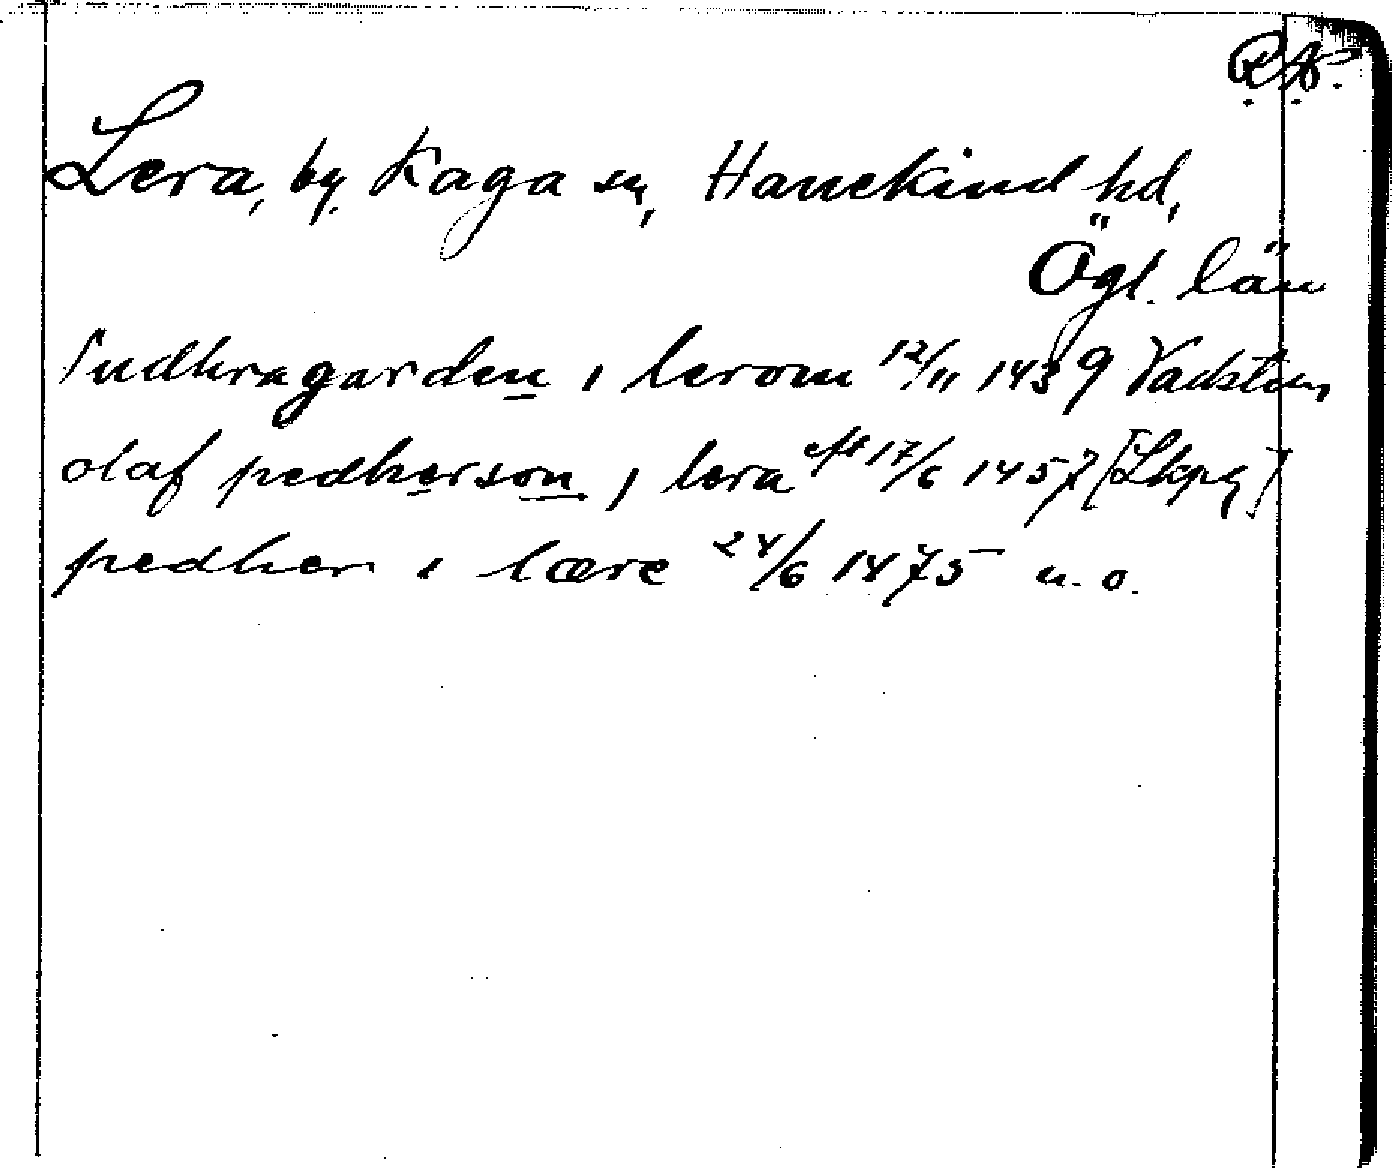 R.A.
Lera, by, Kaga sn, Hanekind hd,
Ögl. län
sudhragarden i lerom 12/11 1439 Vadstena
olaf pedherson i lera eft 17/6 1457 [Lkpg]
pedher i lære 24/6 1475 u. o.